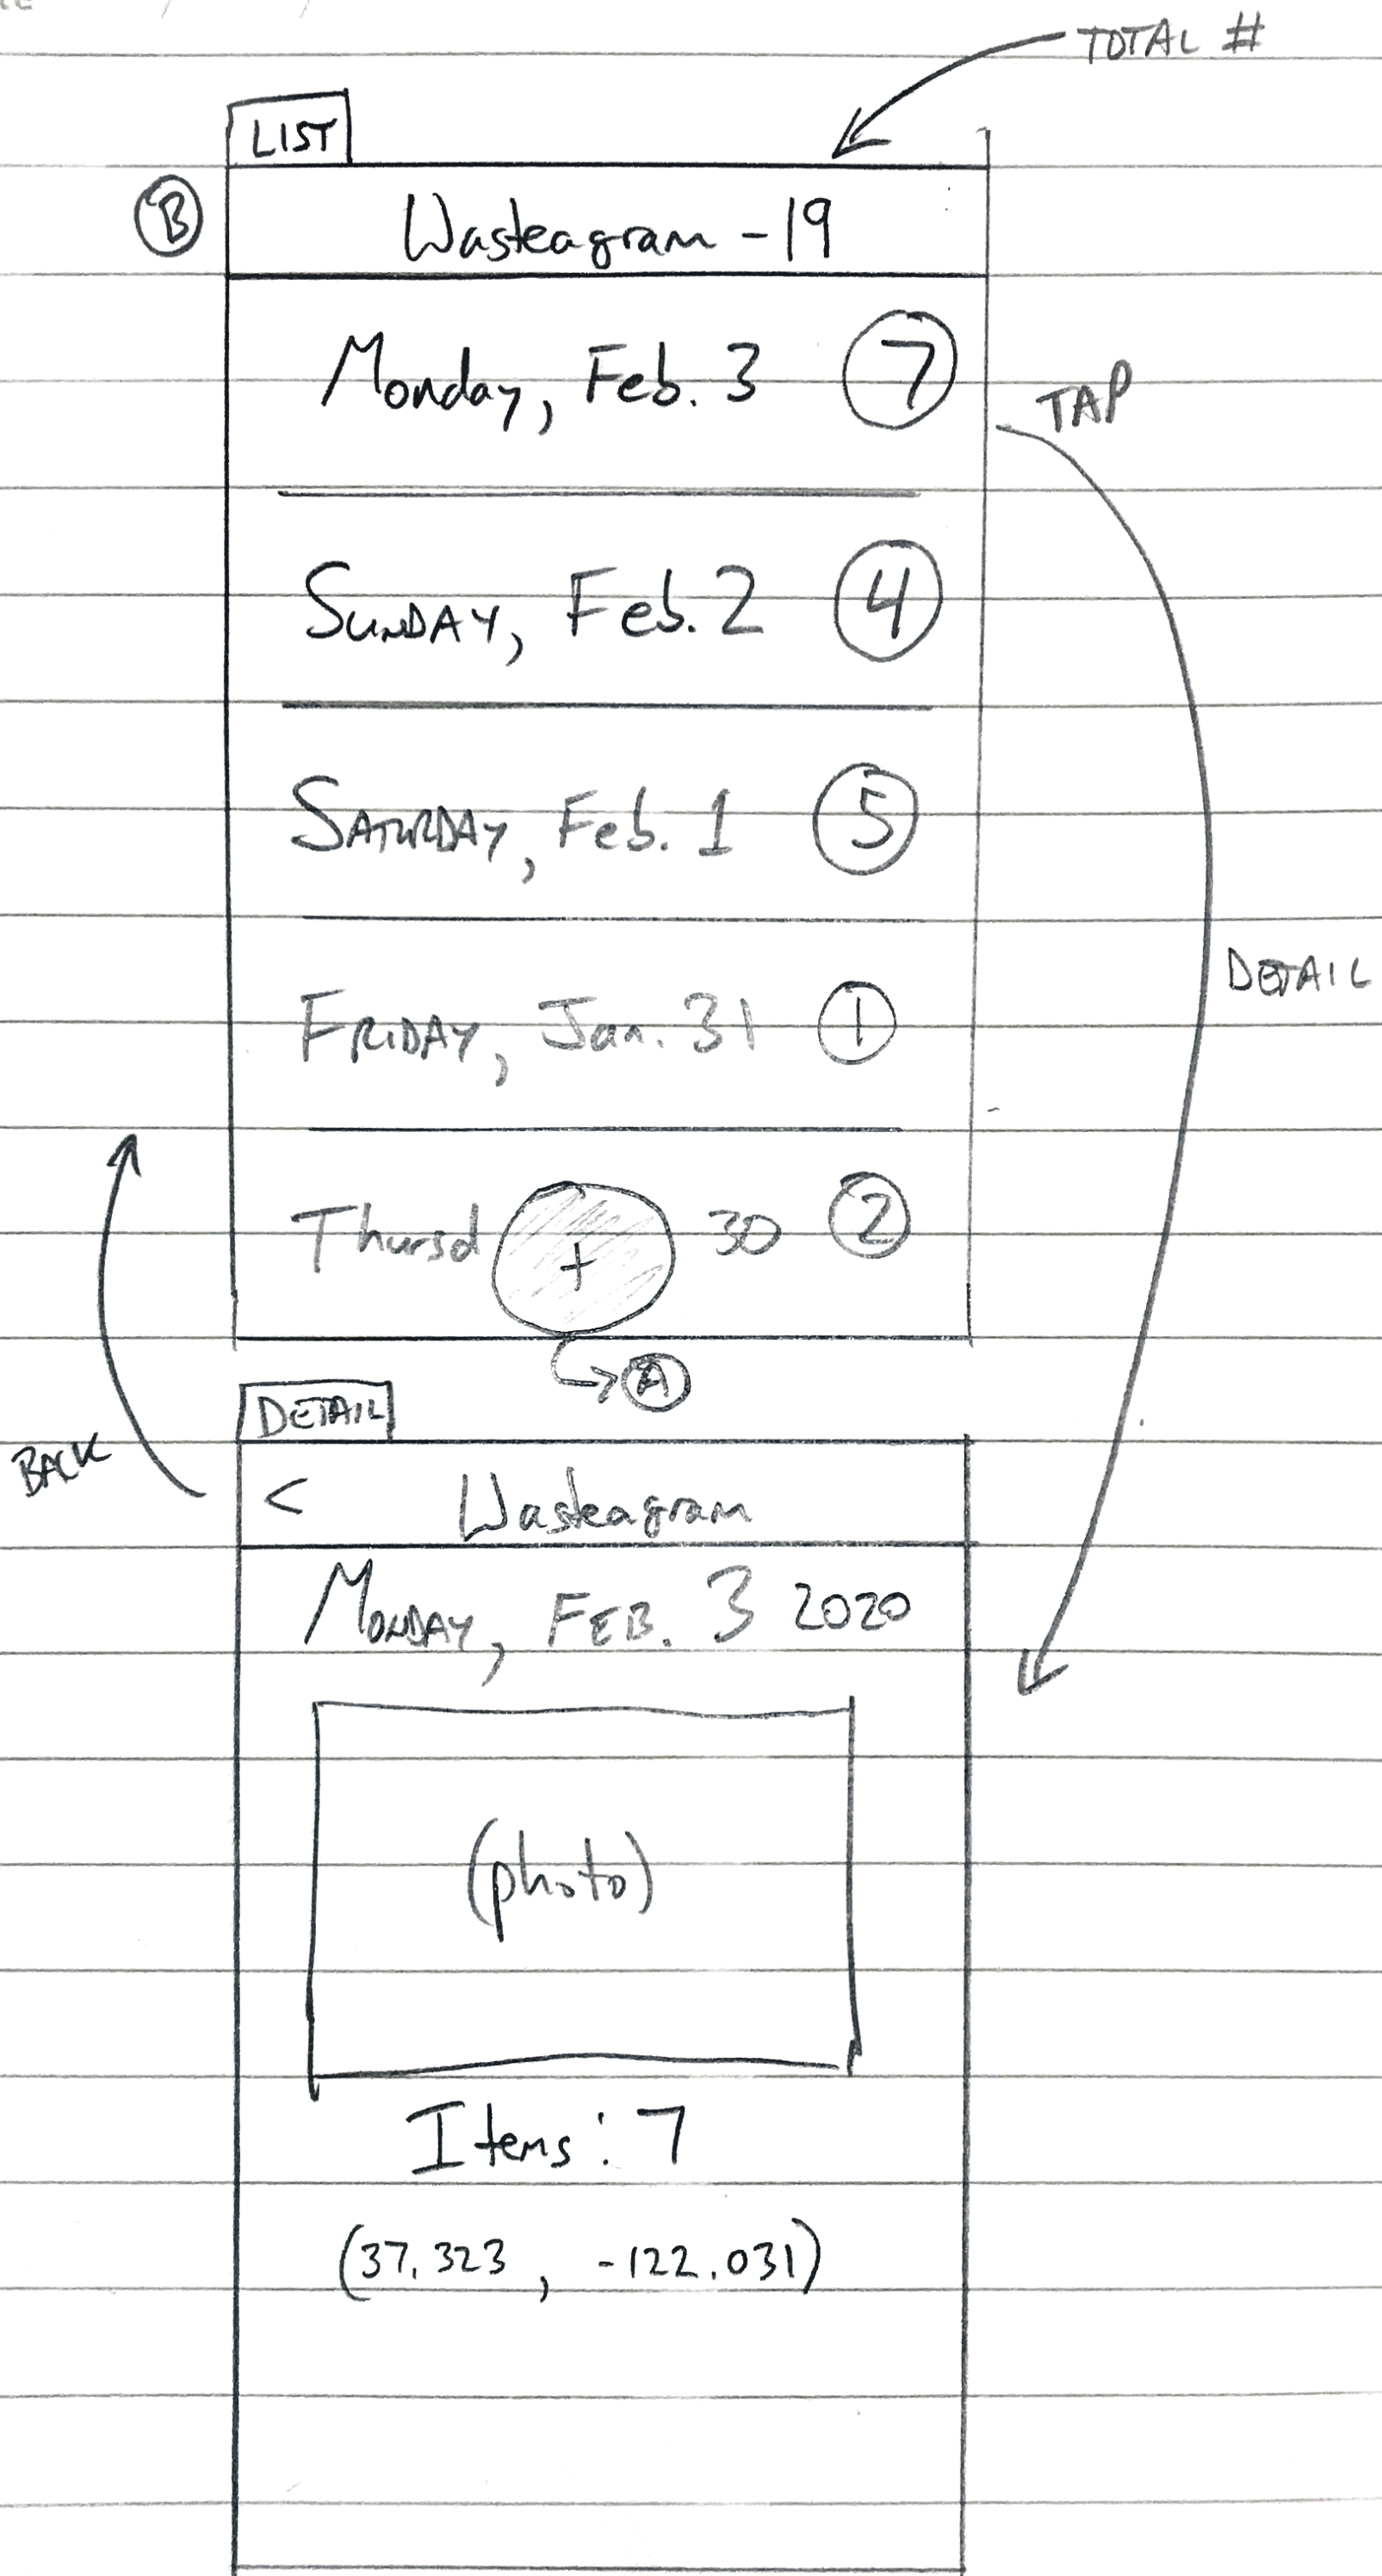 TOTAL #
LIST
B
Wasteagram - 19
Monday, Feb. 3 7
TAP
SUNDAY, Feb. 2 4
SATURDAY, Feb. 1 5
DETAIL
FRIDAY, Jan. 31 1
Thursd + 30 2
A
DETAIL
BACK
< Wasteagram
MONDAY, FEB. 3 2020
(photo)
Items: 7
(37.323, -122.031)